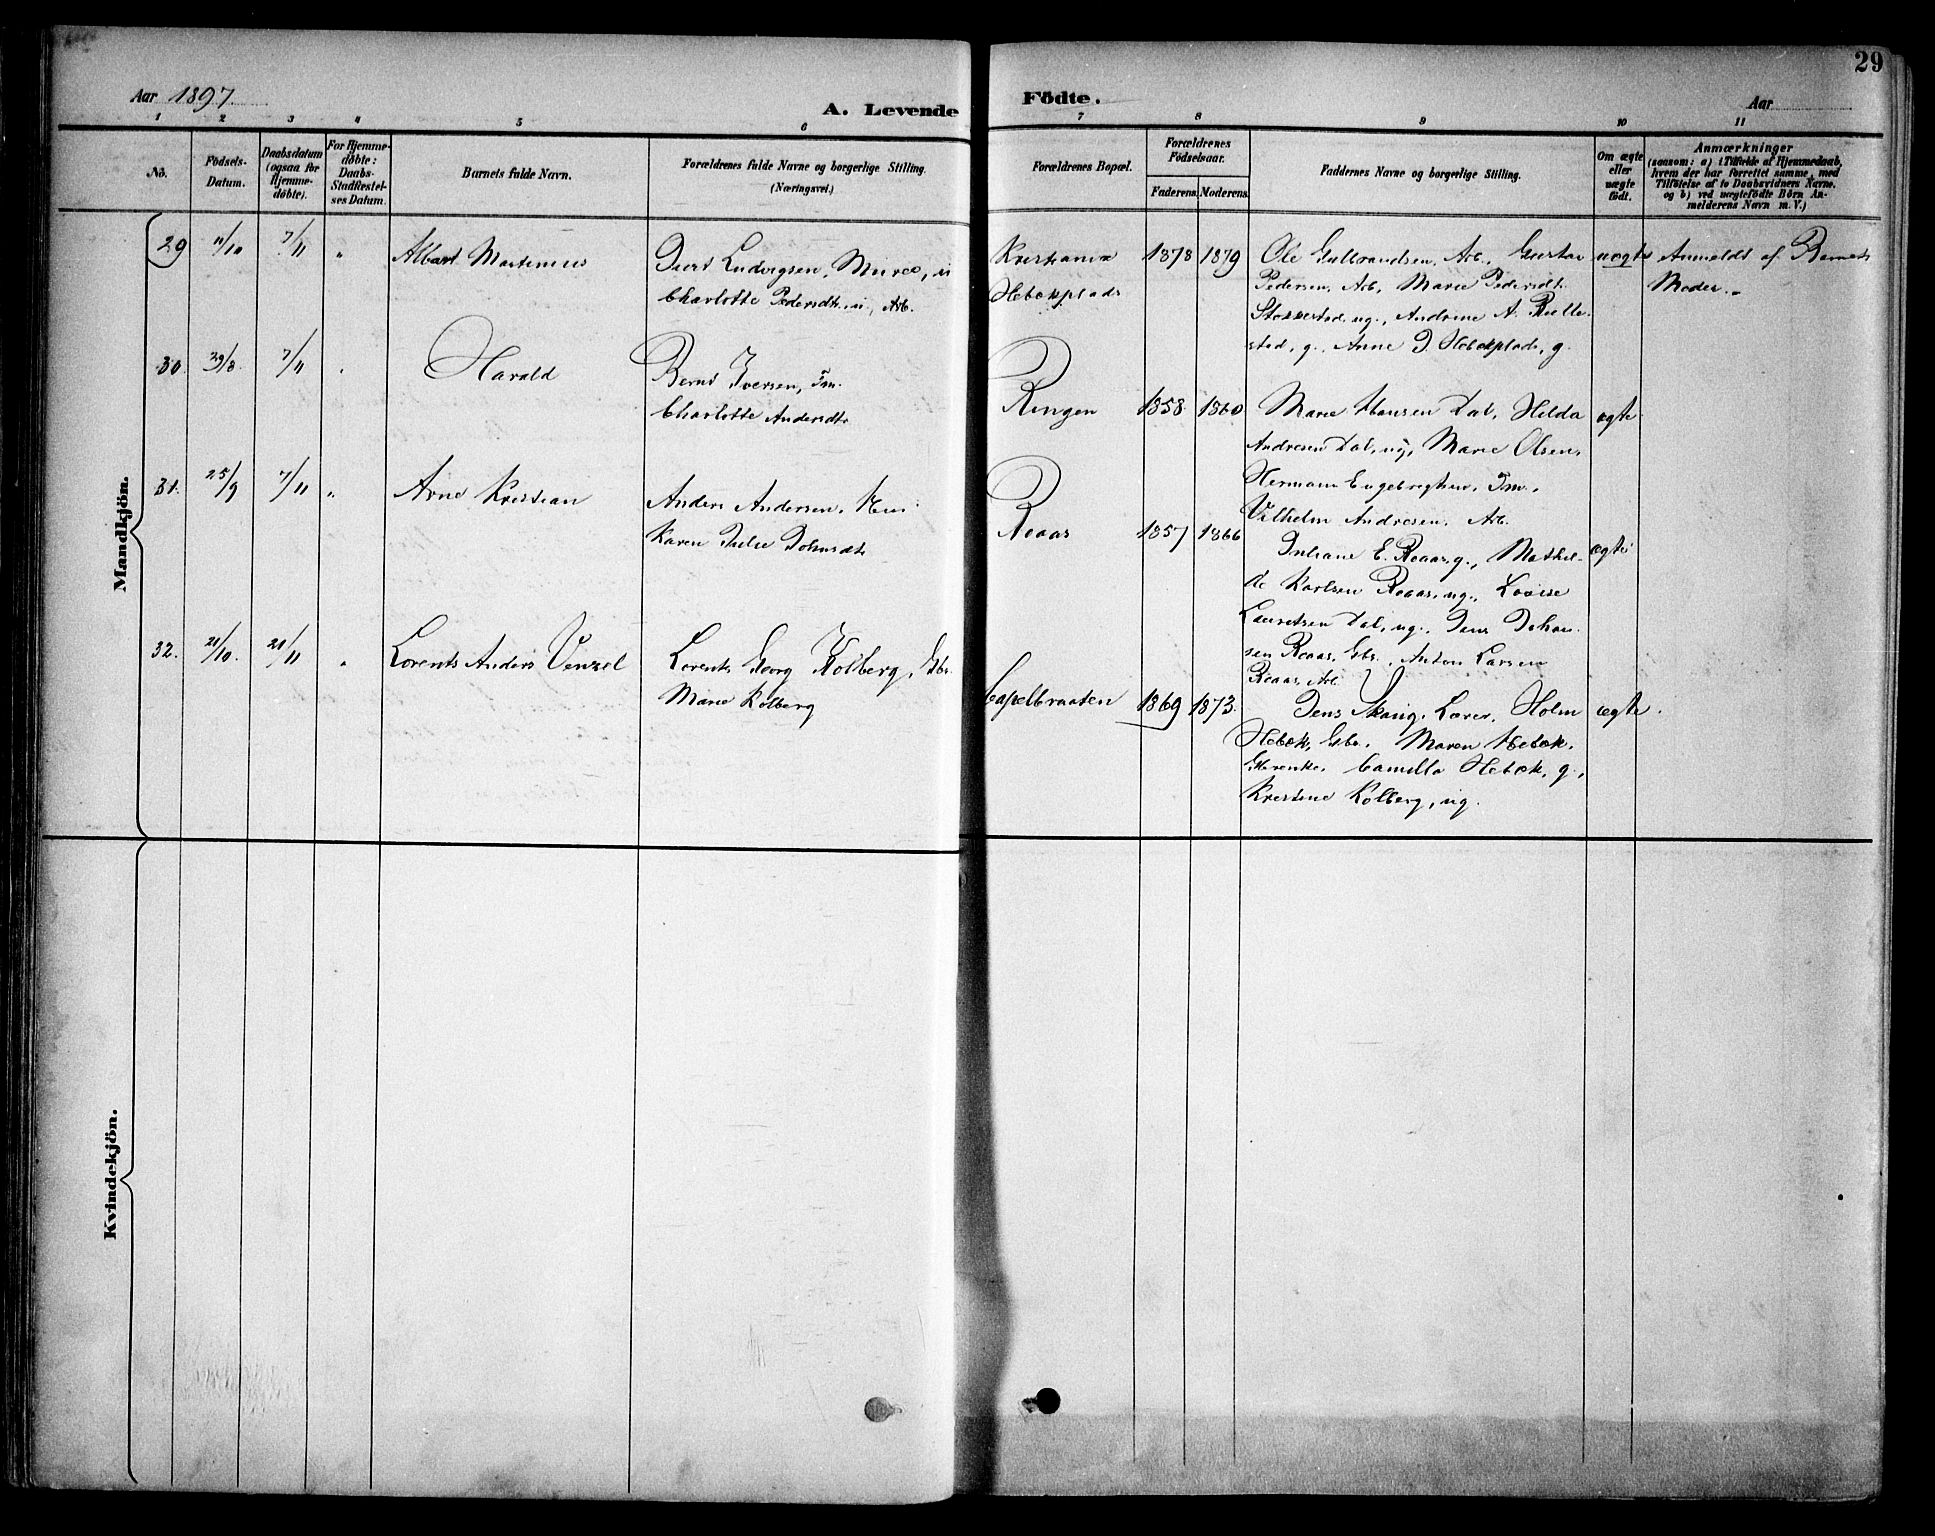 29
Aar 1897.
A. Levende
Födte.
Aar
1 2 3 4 5 6
7 8 9 10 11
No.
Födsels-
Datum.
Daabsdatum
(ogsaa for
Hjemme-
döbte).
For Hjemme-
döbte:
Daabs-
Stadfæstel-
ses Datum.
Barnets fulde Navn.
Forældrenes fulde Navne og borgerlige Stilling.
(Næringsvei.)
Forældrenes Bopæl.
Forældrenes
Födselsaar.
Faderens. Moderens.
Faddernes Navne og borgerlige Stilling.
Om ægte
eller
uægte
födt.
Anmærkninger
(saasom: a) i Tilfælde af Hjemmedaab,
hvem der har forrettet samme, med
Tilföielse af to Daabsvidners Navne,
og b) ved uægtefödte Börn An-
melderens Navn m. V.)
Mandkjön.
29 11/10 7/11 " Albert Martinius
Ludvigsen, Murer, u
Charlotte Pedersdtr. u, Arb.
Kristiania
Hebækplads
1878 1879
Ole Gulbrandsen, Arb., Gustav
Pedersen, Arb, Marie Pedersdt.
Stokkestad, ug., Andrine A. Rolle-
stad, g., Anne D. Hebækplads, g.
uægte
Anmeldt af Barnets
Moder.
30. 29/8. 7/11 " Harald
Bernt Iversen, Tm.
Charlotte Andersdtr
Ringen 1858. 1860
Marie Hansen Dal, Hilda
Andresen Dal, ug, Marie Olsen,
Herman Engebregtsen, Tm.
Vilhelm Andresen, Arb.
ægte
31. 25/9 7/11 " Arne Kristian
Anders Andersen,
Karen Julie Johnsdtr
Roaas 1857 1866
Juliane E. Roaas, g., Mathil-
de Karlsen Roaas, ug., Lovise
Lauritsen Dal, ug., Jens Johan-
sen Roaas, Gbr., Anton Larsen
Roaas, Arb.
ægte
32. 21/10. 21/11 " Lorents Anders Venzel
Lorents Georg Kolberg, Gbr.
Marie Kolberg
Capelbraaten 1869 1873.
Jens Skaug, Lærer, Holm
Hebæk, Gbr. Maren Hebæk,
Gbrenke, Camilla Hebæk, g.,
Kristine Kolberg, ug.
ægte.
Kvindekjön.